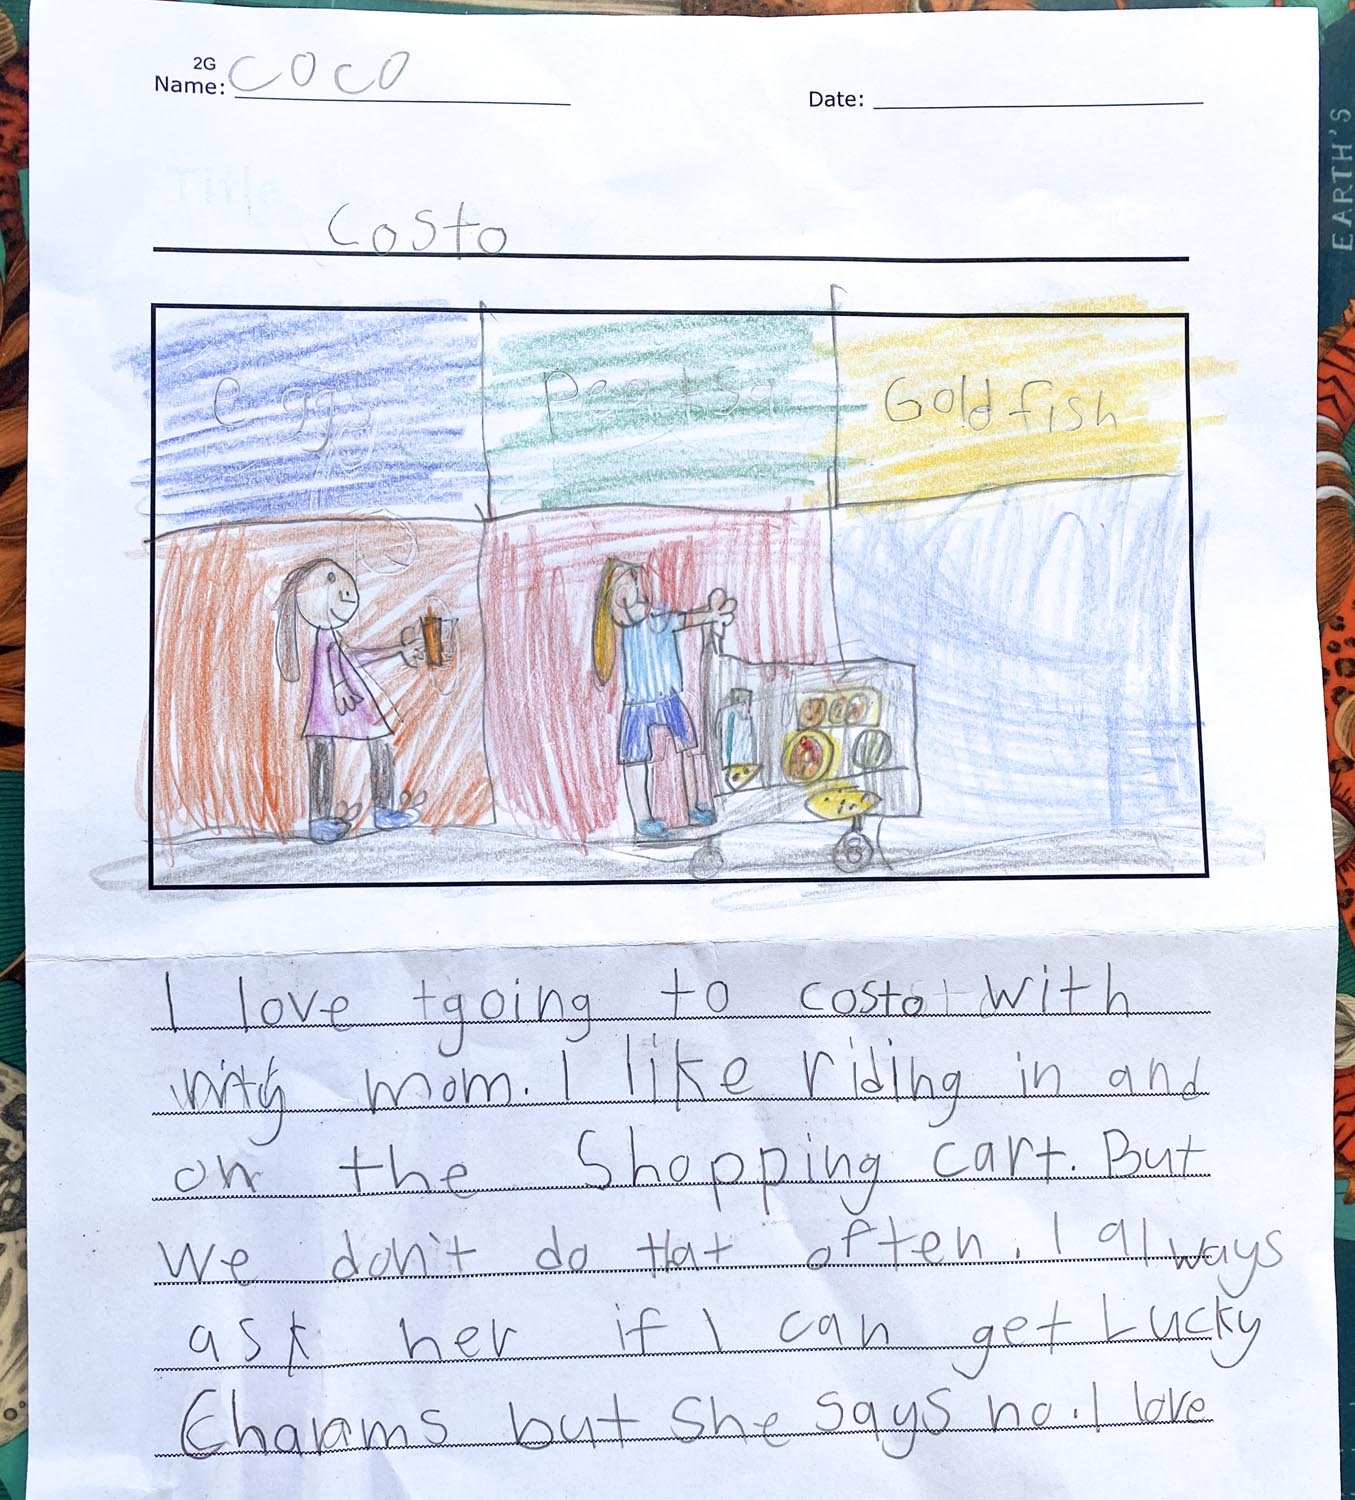 2G
Name: COCO
Date:
Title
Costo
eggs
peatsa
Goldfish
I love going to costo with
my mom. I like riding in and
on the Shopping cart. But
we don't do that often. I always
ask her if I can get Lucky
Charams but She says no. I love
EARTH'S